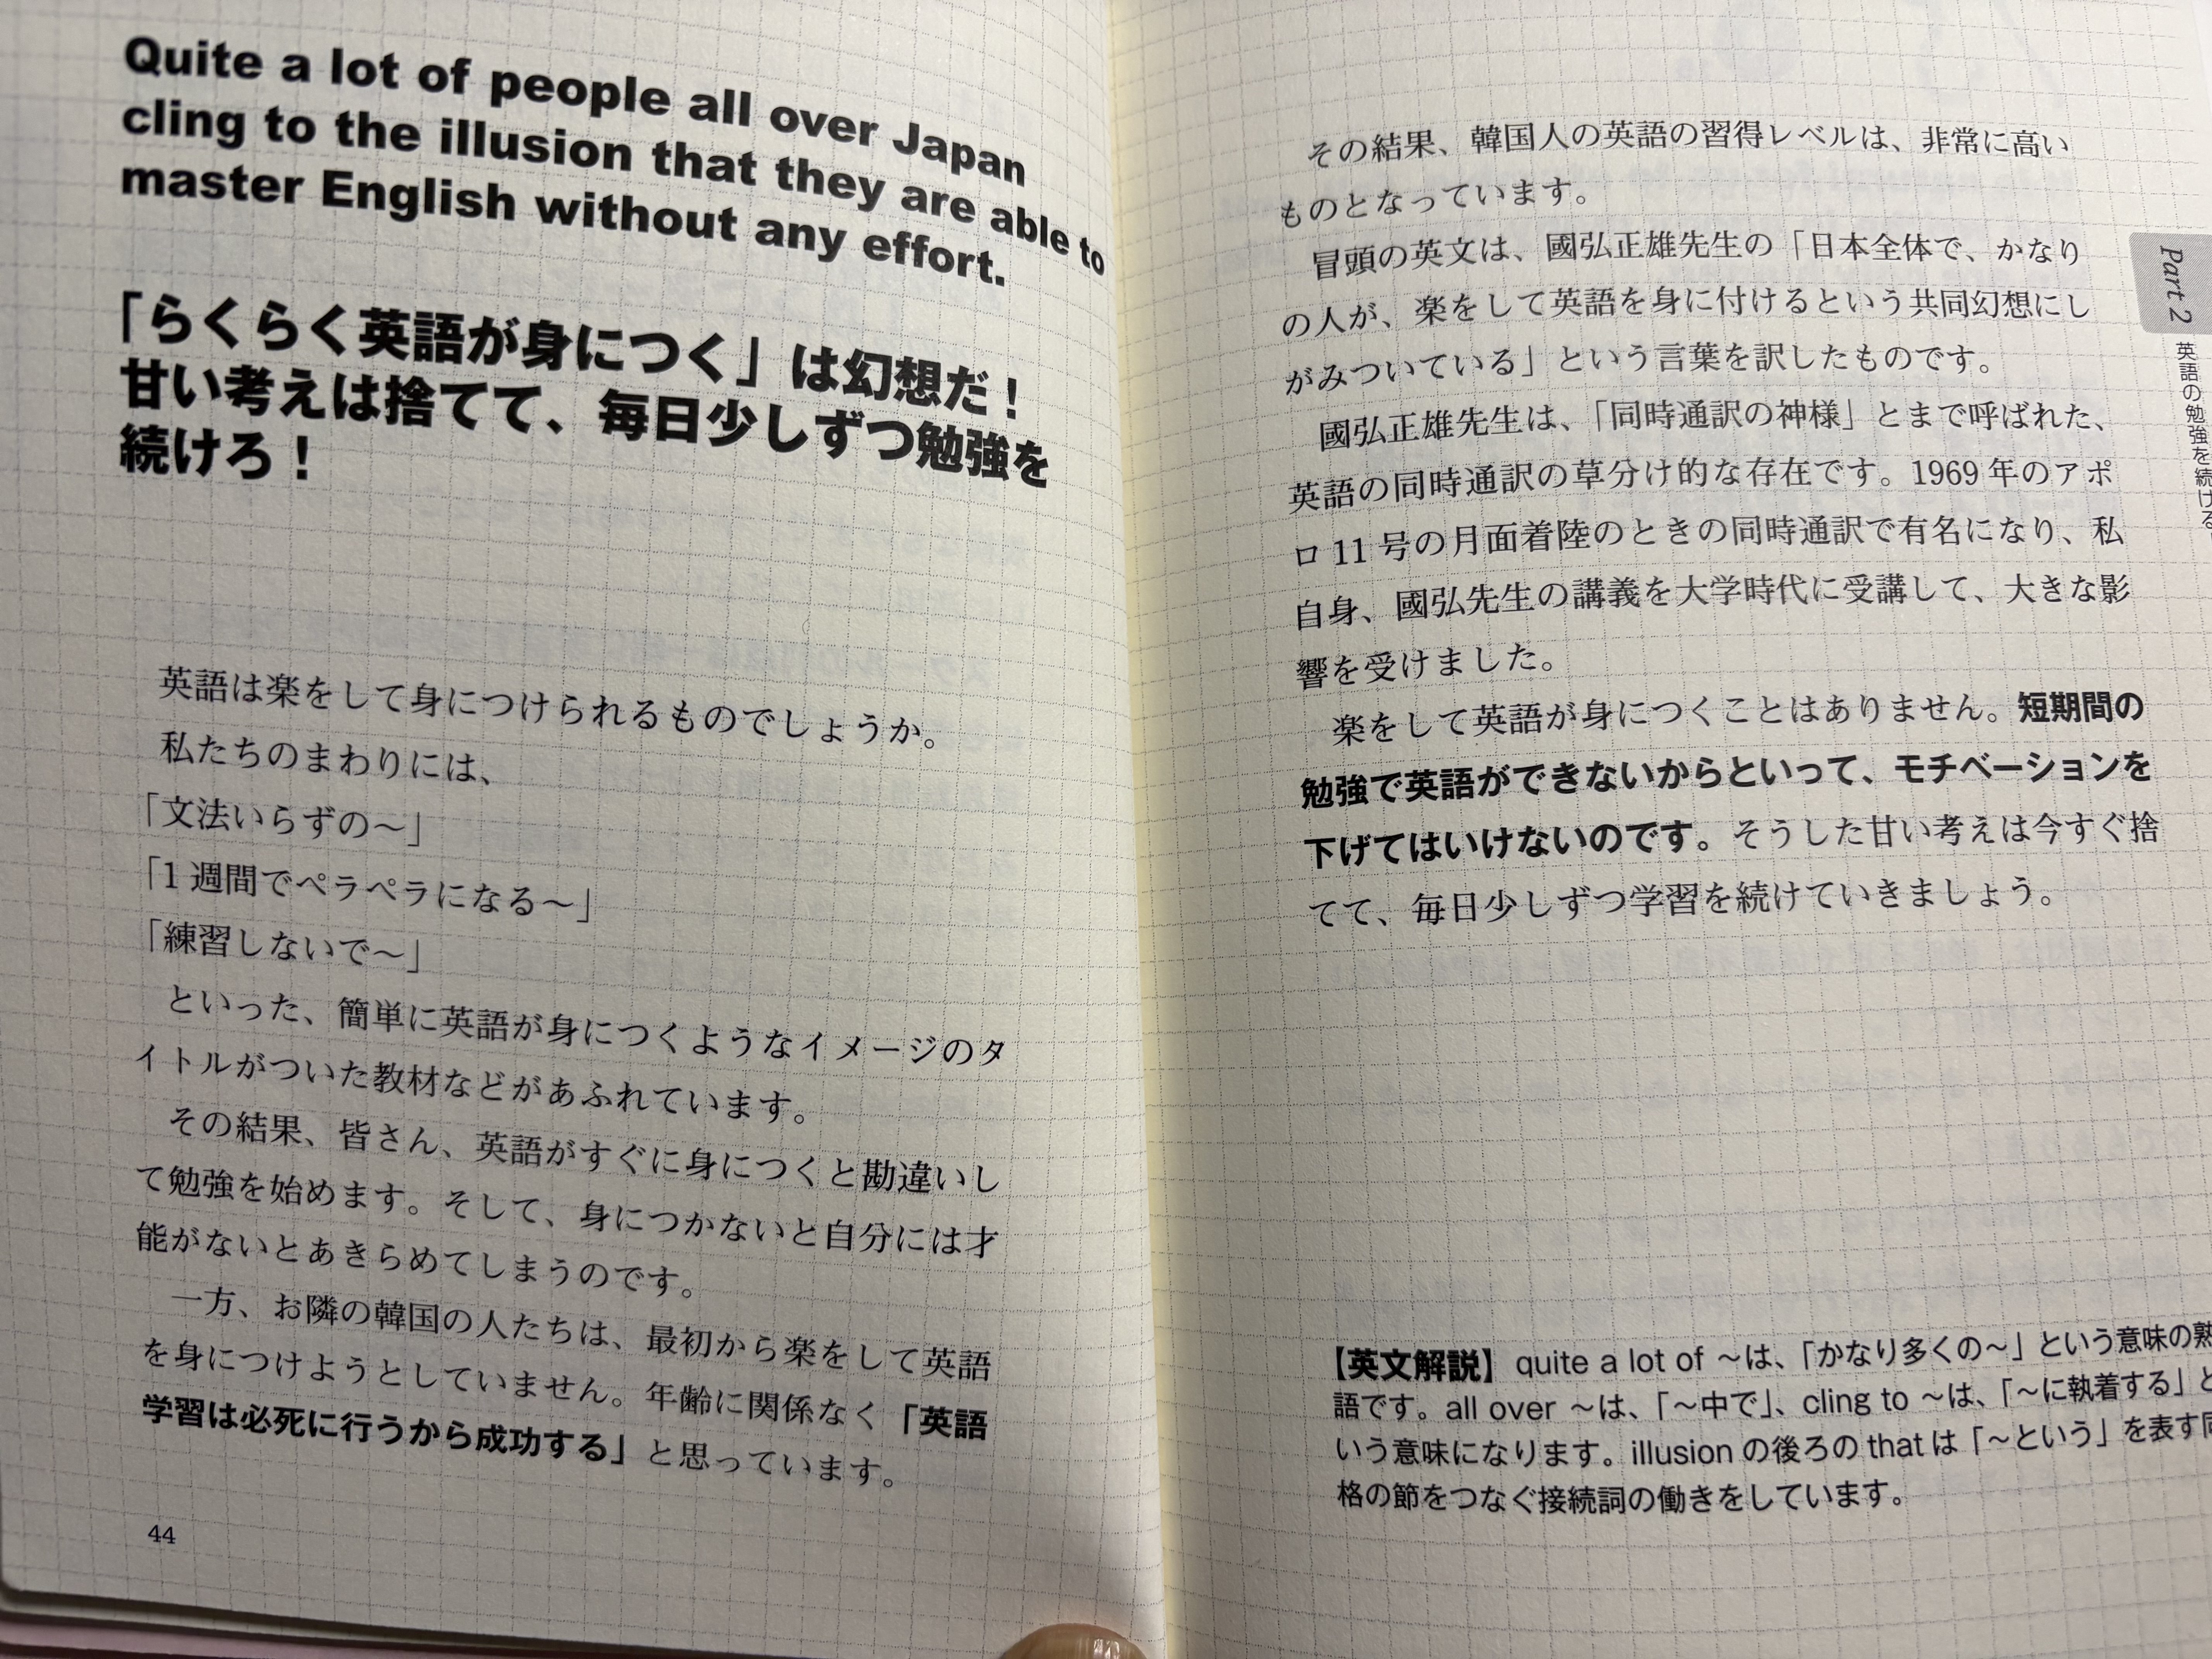 Quite a lot of people all over Japan
cling to the illusion that they are able to
master English without any effort.
「らくらく英語が身につく」は幻想だ！
甘い考えは捨てて、毎日少しずつ勉強を
続けろ！
英語は楽をして身につけられるものでしょうか。
私たちのまわりには、
「文法いらずの～」
「1週間でペラペラになる～」
「練習しないで～」
といった、簡単に英語が身につくようなイメージのタ
イトルがついた教材などがあふれています。
その結果、皆さん、英語がすぐに身につくと勘違いし
て勉強を始めます。そして、身につかないと自分には才
能がないとあきらめてしまうのです。
一方、お隣の韓国の人たちは、最初から楽をして英語
を身につけようとしていません。年齢に関係なく「英語
学習は必死に行うから成功する」と思っています。
44
その結果、韓国人の英語の習得レベルは、非常に高い
ものとなっています。
冒頭の英文は、國弘正雄先生の「日本全体で、かなり
の人が、楽をして英語を身に付けるという共同幻想にし
がみついている」という言葉を訳したものです。
國弘正雄先生は、「同時通訳の神様」とまで呼ばれた、
英語の同時通訳の草分け的な存在です。1969年のアポ
ロ11号の月面着陸のときの同時通訳で有名になり、私
自身、國弘先生の講義を大学時代に受講して、大きな影
響を受けました。
楽をして英語が身につくことはありません。短期間の
勉強で英語ができないからといって、モチベーションを
下げてはいけないのです。そうした甘い考えは今すぐ捨
てて、毎日少しずつ学習を続けていきましょう。
【英文解説】quite a lot of ～は、「かなり多くの～」という意味の熟
語です。all over ～は、「～中で」、cling to ～は、「～に執着する」と
いう意味になります。illusionの後ろのthatは「～という」を表す同
格の節をつなぐ接続詞の働きをしています。
Part 2
英語の勉強を続ける